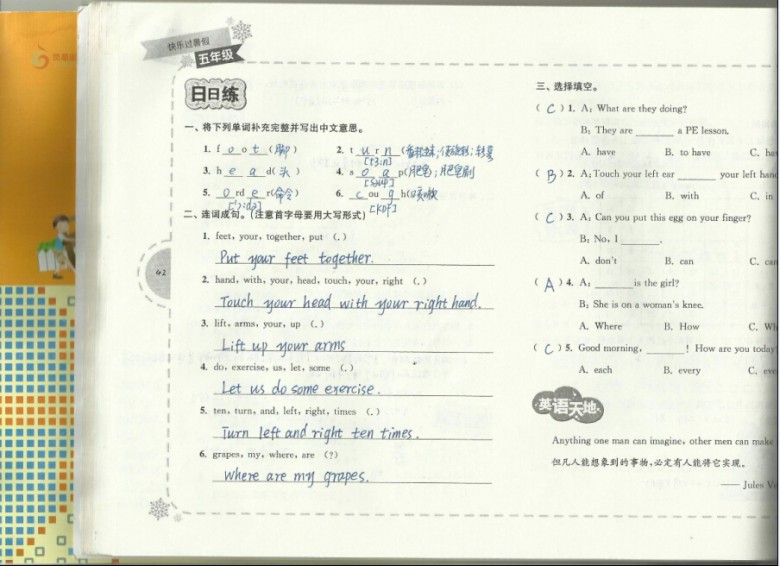 快乐过暑假
五年级
日日练
一、将下列单词补充完整并写出中文意思。
1. f o o t (脚)
2. t u r n
[tɜ:n]
3. h e a d(头)
4. s o a p(肥皂;肥皂剧
[səup]
5. o rd e r(命令)
6. c ou g h(咳嗽
[kɒf]
二、连词成句。(注意首字母要用大写形式)
1. feet, your, together, put (.)
Put your feet together.
2. hand, with, your, head, touch, your, right (.)
Touch your head with your right hand.
3. lift, arms, your, up (.)
Lift up your arms
4. do, exercise, us, let, some (.)
Let us do some exercise.
5. ten, turn, and, left, right, times (.)
Turn left and right ten times.
6. grapes, my, where, are (?)
where are my grapes.
42
三、选择填空。
( C ) 1. A: What are they doing?
B: They are ______ a PE lesson.
A. have B. to have C. ha
( B ) 2. A: Touch your left ear ______ your left hand
A. of B. with C. in
( C ) 3. A: Can you put this egg on your finger?
B: No, I ______.
A. don't B. can C. can
( A ) 4. A: ______ is the girl?
B: She is on a woman's knee.
A. Where B. How C. Wh
( C ) 5. Good morning, ______! How are you today
A. each B. every C. eve
英语天地
Anything one man can imagine, other men can make
但凡人能想象到的事物,必定有人能将它实现。
—— Jules Ve